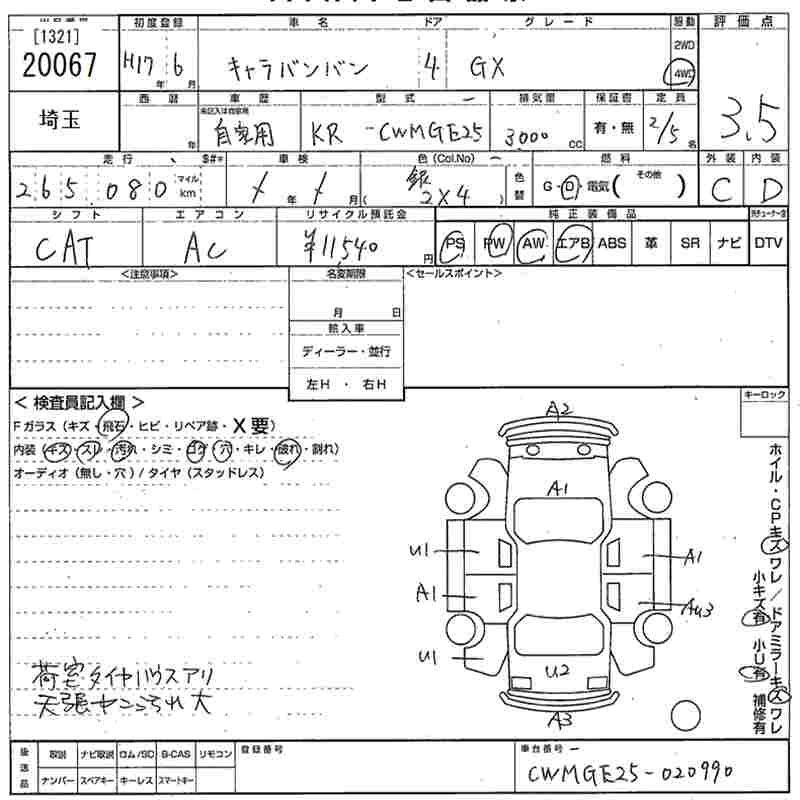 [1321]
20067
埼玉
初度登録 車名 ドア グレード 駆動 評価点
H17年 6月 キャラバンバン 4 GX 2WD 4WD 3.5
西暦 車歴 型式 排気量 保証書 定員
年 自家用 KR -CWMGE25 3,000 cc 有・無 2/5名
走行 車検 色(Col.No) 色替 燃料 外装 内装
265,080 マイル km / 年 / 月 銀 (2X4) G・D・電気( その他 ) C D
シフト エアコン リサイクル預託金 純正装備品
CAT AC ¥11,540円 PS PW AW エアB ABS 革 SR ナビ DTV
<注意事項> 名変期限 <セールスポイント>
月 日
輸入車
ディーラー・並行
左H ・ 右H
< 検査員記入欄 > キーロック
Fガラス(キズ・飛石・ヒビ・リペア跡・X要)
内装(キズ・スレ・汚れ・シミ・コゲ・穴・キレ・破れ・割れ)
オーディオ(無し・穴)/タイヤ(スタッドレス)
A2
A1
U1 A1
A1 AU3
U1 U2
A3
ホイル・CPキズワレ/ドアミラーキズワレ
小キズ有 小U有 補修有
荷室タイヤハウスアリ
後送品 取説 ナビ取説 ロム/SD B-CAS リモコン 登録番号 車台番号
ナンバー スペアキー キーレス スマートキー CWMGE25-020990